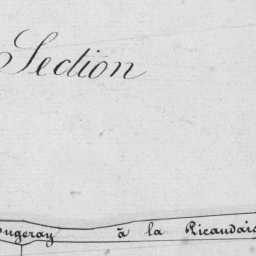 Section
ougeray à la Ricaudais